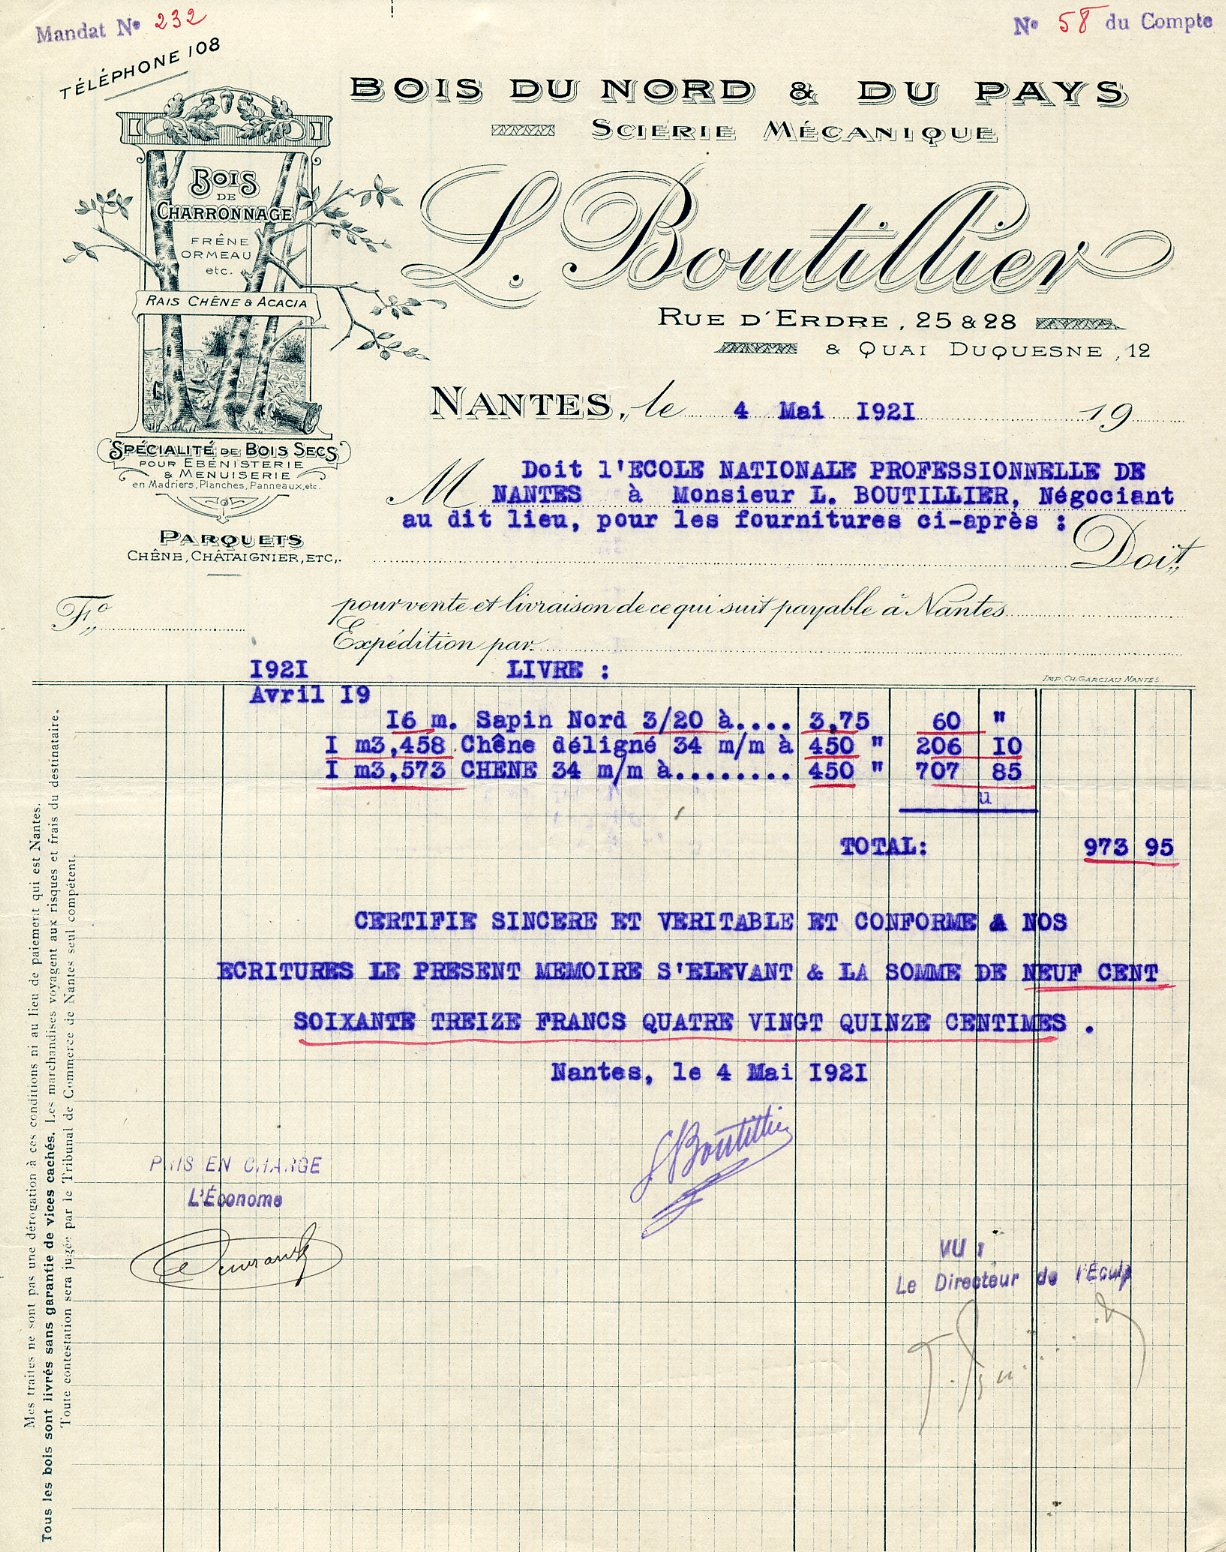 Mandat Nº 232
Nº 58 du Compte
TÉLÉPHONE 108
BOIS DU NORD & DU PAYS
SCIERIE MÉCANIQUE
L. Boutillier
RUE D'ERDRE, 25 & 28
& QUAI DUQUESNE, 12
BOIS
DE
CHARRONNAGE
FRÊNE
ORMEAU
etc.
RAIS CHÊNE & ACACIA
SPÉCIALITÉ DE BOIS SECS
POUR EBÉNISTERIE
& MENUISERIE
en Madriers, Planches, Panneaux, etc.
PARQUETS
CHÊNE, CHÂTAIGNIER, ETC,.
NANTES, le 4 Mai I92I 19
M Doit l'ECOLE NATIONALE PROFESSIONNELLE DE
NANTES à Monsieur L. BOUTILLIER, Négociant
au dit lieu, pour les fournitures ci-après :
Doit,,
Fº,,
pour vente et livraison de ce qui suit payable à Nantes
Expédition par
I92I LIVRE :
IMP. CH. GARCIAU NANTES.
Avril I9
I6 m. Sapin Nord 3/20 à.... 3,75 60 "
I m3,458 Chêne déligné 34 m/m à 450 " 206 IO
I m3,573 CHENE 34 m/m à........ 450 " 707 85
u
TOTAL: 973 95
CERTIFIE SINCERE ET VERITABLE ET CONFORME A NOS
ECRITURES LE PRESENT MEMOIRE S'ELEVANT & LA SOMME DE NEUF CENT
SOIXANTE TREIZE FRANCS QUATRE VINGT QUINZE CENTIMES .
Nantes, le 4 Mai I92I
L Boutillier
PRIS EN CHARGE
L'Économe
VU :
Le Directeur de l'École
Mes traites ne sont pas une dérogation à ces conditions ni au lieu de paiement qui est Nantes.
Tous les bois sont livrés sans garantie de vices cachés. Les marchandises voyagent aux risques et frais du destinataire.
Toute contestation sera jugée par le Tribunal de Commerce de Nantes seul compétent.